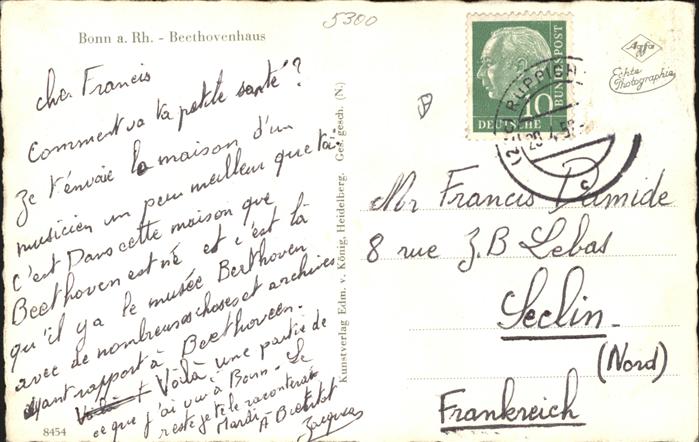 5300
Bonn a. Rh. - Beethovenhaus
cher Francis
Comment va ta petite santé ?
Je t'envoie la maison d'un
musicien un peu meilleur que toi.
C'est Dans cette maison que
Beethoven est né et c'est là
qu'il y a le musée Beethoven
avec de nombreuses choses et archives
ayant rapport à Beethoven.
Voilà une partie de
ce que j'ai vu à Bonn - Le
reste je te le raconterai
Mardi - A Bientôt
Jacques
8454
Kunstverlag Edm. v. König, Heidelberg. Ges. gesch. (N.)
DEUTSCHE
BUNDESPOST
10
RUPPICH
c
Agfa
Echte
Photographie
Mr Francis Damide
8 rue J.B Lebas
Seclin
(Nord)
Frankreich